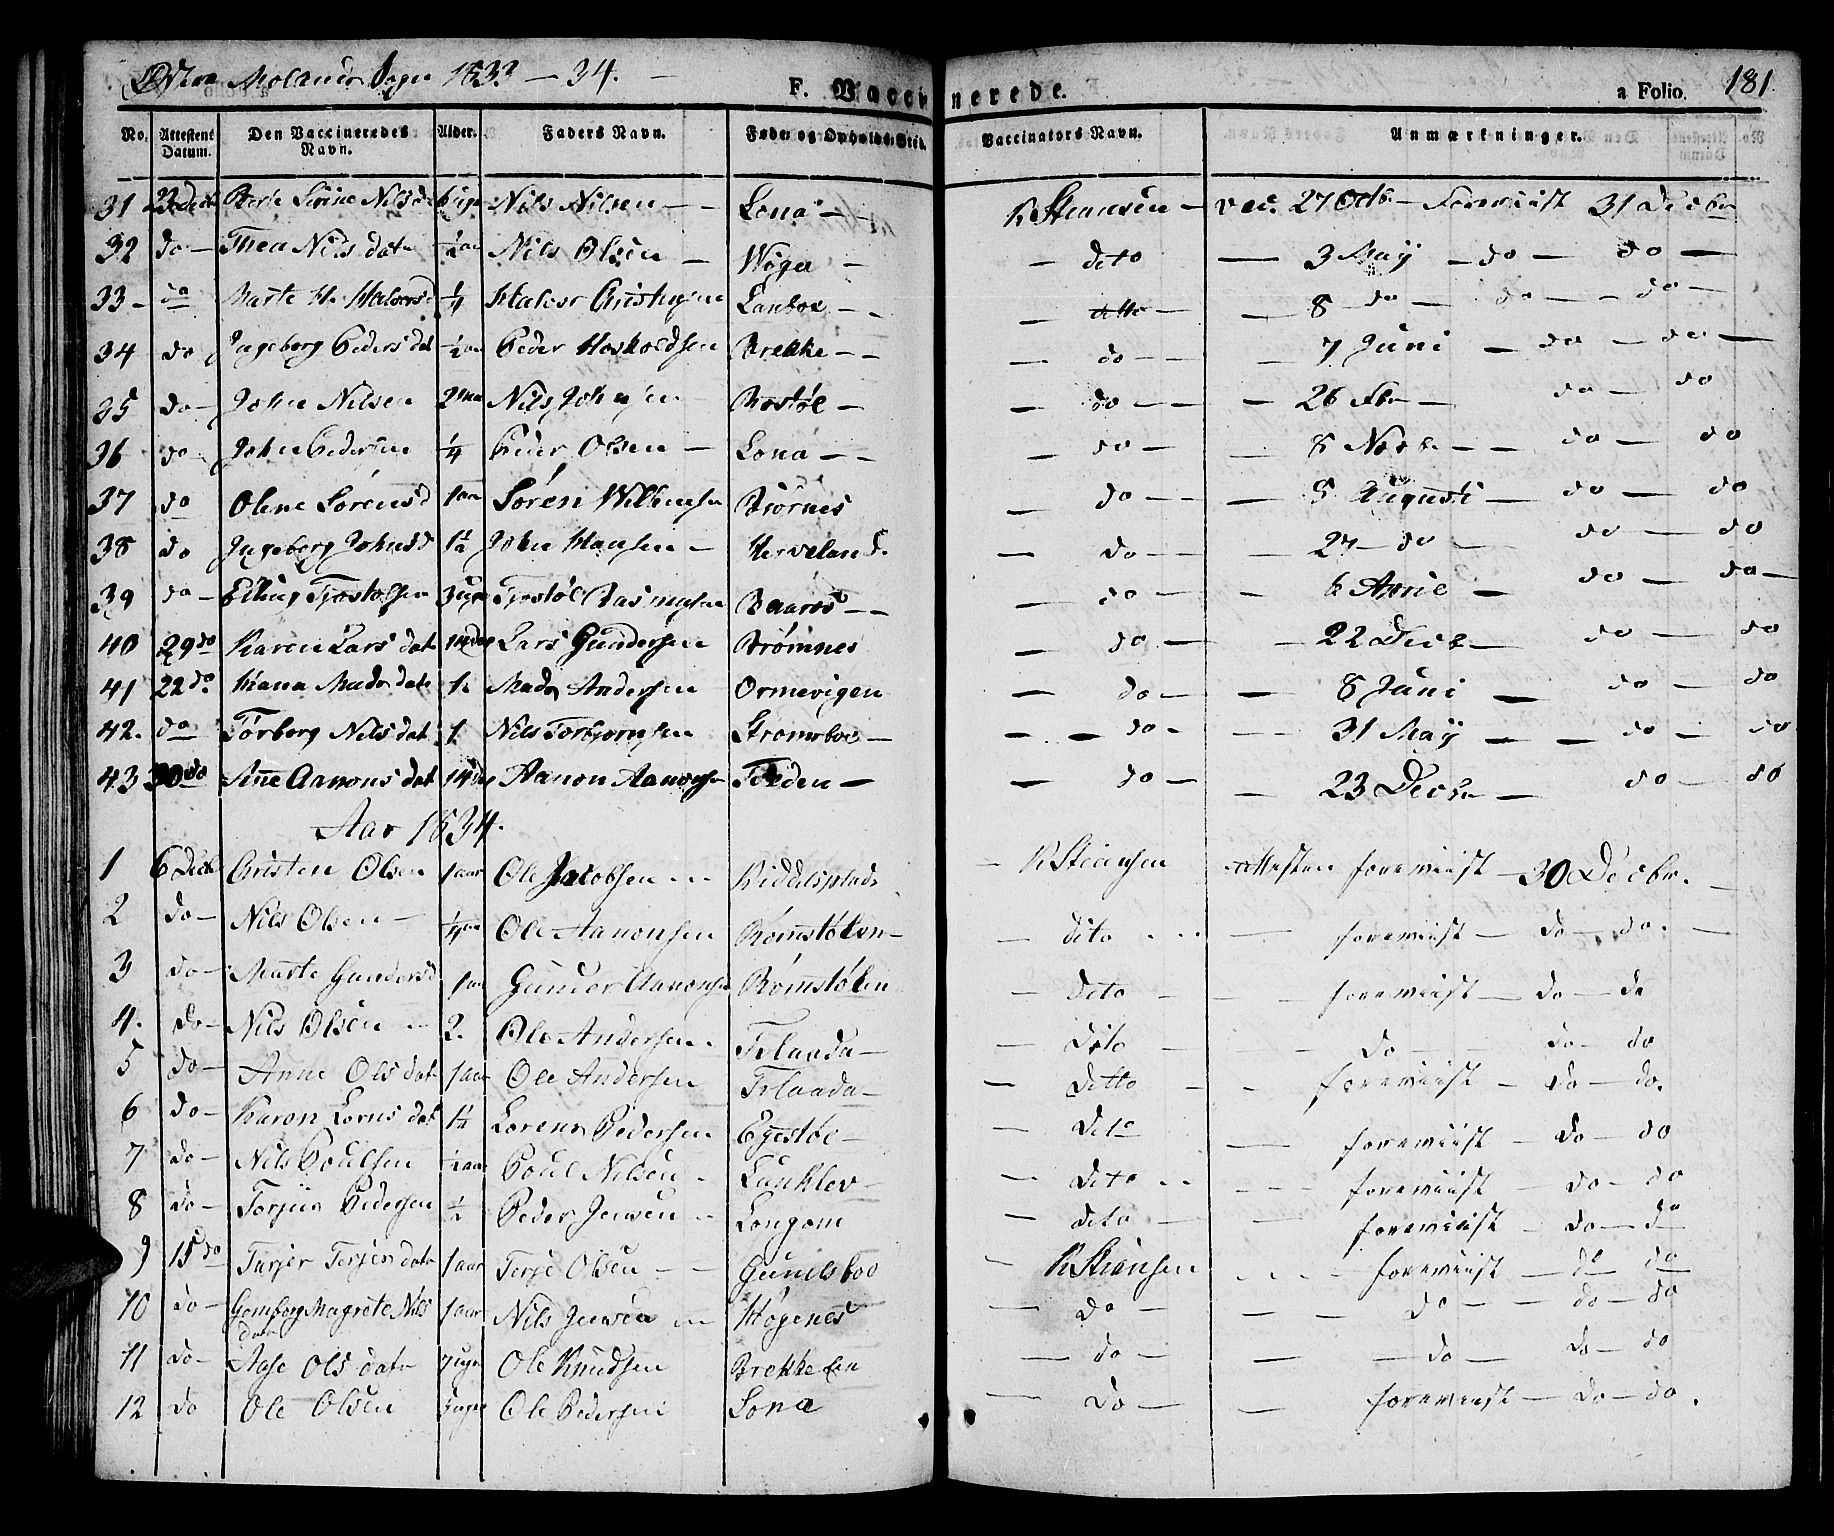 Østre Molands Sogn 1833 — 34. —
F. Vaccinerede.
a Folio. 181.
No. Attestens Datum. Den Vaccineredes Navn. Alder. Faders Navn. Føde og Opholds-Sted. Vaccinators Navn. Anmærkninger.
31 23 Decb Sirine Nilsd 6 uger Nils Nilsen — Lona — K Steensen — vac. 27 Octb — Foreviist 31 Decbr
32 do — Thea Nils datr ½ aar Nils Olsen — — dito — 3 May — do — do —
33 — do Marte H. Halvorsd ¼ Halvor Christensen — — ditto — 8 do — do — do —
34 do Ingeborg Peders dat ½ aar Peder Hoskoldsen Brekke — — do — 7 Juni — do — do —
35 do — John Nilsen 2 Nils Johnsen Bostøl — — do — — 26 Fbr — do — do
36 do — John Pedersen ¼ Peder Olsen — Lona — — do — — 8 Novb — do — do
37 do Olene Sørensd 1 aar Søren Willumsen Biørnes — do — — 5 Augusti — do — do
38 do Ingeborg Johnsd ½ John Hansen — Herveland. — do — — 27 do — do — do
39 do — Elling Tjostolfsen 3 uger Tjostøl Rasmusen — — do — — 6 April — do — do —
40 29 do Karen Lars dat 14 dag Lars Gundersen Strømnes — do — — 22 Decb — do — do
41 22 do. Mads datr ½ Mads Andersen Ormevigen — do — — 8 Juni — do — do
42. do Torborg Nils dat ½ Nils Torbjørnsen Strømsboe — — — do — — 31 May — do — do
43 30 do Aanons dat 14 dag Aanon Aanonsen — — do — — 23 Decbr — do — do
Aar 1834.
1 6 Decb Cristen Olsen 1 aar Ole Jacobsen — Riddelsplads — K Steensen Attesten foreviist — 30 Decbr. —
2 do — Nils Olsen — ¼ aar Ole Aanonsen Rømstølen — — dito — — foreviist — do — do. —
3 do — Marte Gundersd 1 aar Gunder Aanonsen Rømstølen — dito — — foreviist — do — do
4. do — Nils Olsen — 2. Ole Andersen. Flaada — — dito — — do — do — do
5 do — Anne Ols datr 1 aar Ole Andersen Flaada — — ditto — — foreviist — do — do.
6 do — Karen Lorns dat ½ Lorens Pedersen Egestøl — — dito — foreviist — do — do
7 do — Nils Poulsen ½ aar Poul Nilsen — Lunklev — — dito — — foreviist — do — do
8 do — Torjus Pedersen ½ Peder Jensen — Longom — dito — foreviist — do — do
9 15 do Torjer Terjes datr 1 aar Terje Olsen — — Gunilsboe — K Steensen — foreviist — do do
10 do — Gomborg Magrete Nils datr 1 aar Nils Jensen — Høgenes — do — — do — — do — do
11 do — Aase Ols datr 7 uger Ole Knudsen Brekkelen — do — — — do — do do
12 do Ole Olsen 3 uger Ole Pedersen Lona — do — — foreviist — do — do.